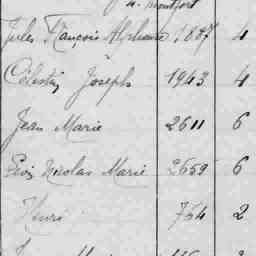 Montfort
Jules François Alphonse 1687 4
Célestin Joseph 1943 4
Jean Marie 2611 6
Nicolas Marie 2659 6
Henri 754 2